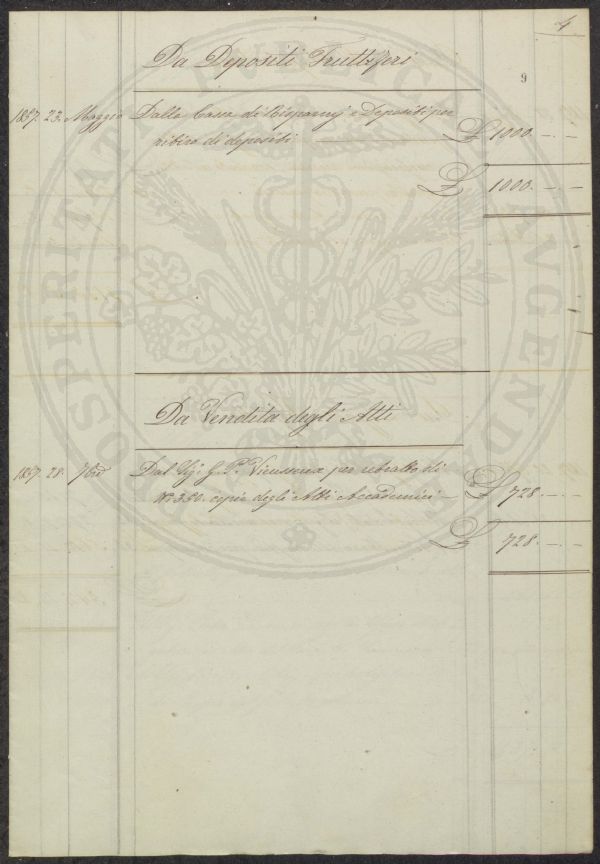 4
9
Da Depositi Fruttiferi
1857. 23. Maggio Dalla Cassa di Risparmj e Depositi per
ritiro di depositi £ 1000. — . —
£ 1000. — . —
Da Vendita degli Atti
1857. 28. 7bre Dal Sig: G. P. Vieusseux per ritratto di
N° 350. copie degli Atti Accademici — £ 728. — . —
£ 728. — . —
PROSPERITATI PUBLICAE AUGENDAE